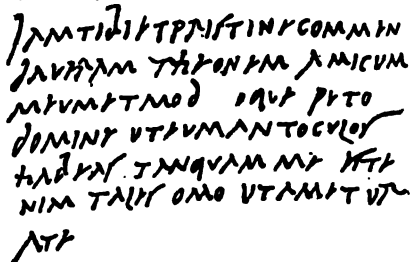 iam tibi et pristine commen
daueram theonem amicum
meum et mod oque peto
domine ut eum ant oculos
habeas tanquam me est e
nim tales omo ut ametur
a te